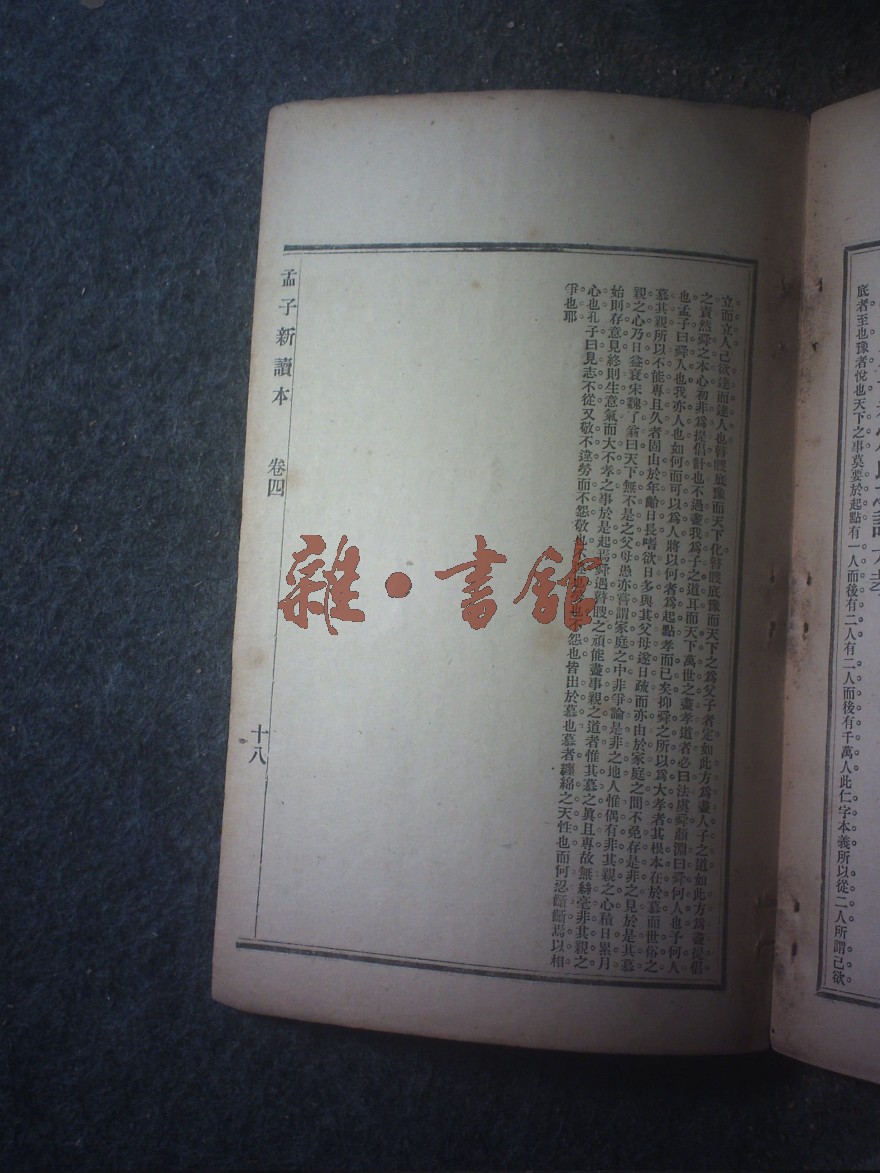 底者至也豫者悅也天下之事莫要於起點有一人而後有二人有二人而後有千萬人此仁字本義所以從二人所謂己欲
立而立人己欲達而達人也瞽瞍底豫而天下化瞽瞍底豫而天下之爲父子者定如此方爲盡人子之道如此方爲盡提倡
之責然舜之本心初非爲提倡計也不過盡我爲子之道耳而天下萬世之盡孝道者必曰法虞舜顏淵曰舜何人也予何人
也孟子曰舜人也我亦人也如何而可以爲人將以何者爲起點孝而已矣抑舜之所以爲大孝者其根本在於慕而世俗之
慕其親所以不能專且久者固由於年齡日長嗜欲日多與其父母遂日疏而亦由於家庭之間不免存是非之見於是其慕
親之心乃日益衰宋魏了翁曰天下無不是之父母愚亦嘗謂家庭之中非爭論是非之地人惟偶有非其親之心積日累月
始則存意見終則生意氣而大不孝之事於是起焉舜遇瞽瞍之頑能盡事親之道者惟其慕之眞且專故無絲毫非其親之
心也孔子曰見志不從又敬不違勞而不怨敬也不違也勞也不怨也皆出於慕也慕者纏綿之天性也而何忍齗齗焉以相
爭也耶
孟子新讀本 卷四 十八
雜·書館